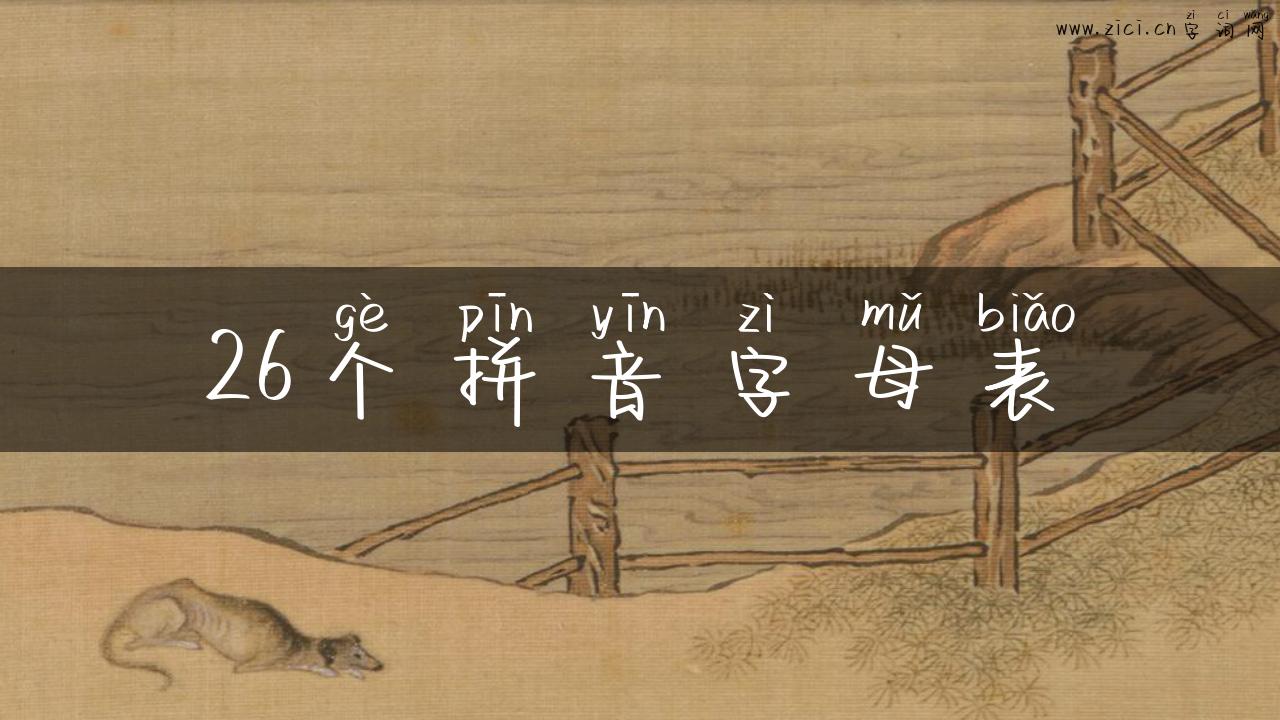 zì cí wǎng
www.zici.cn字词网
gè pīn yīn zì mǔ biǎo
26个拼音字母表